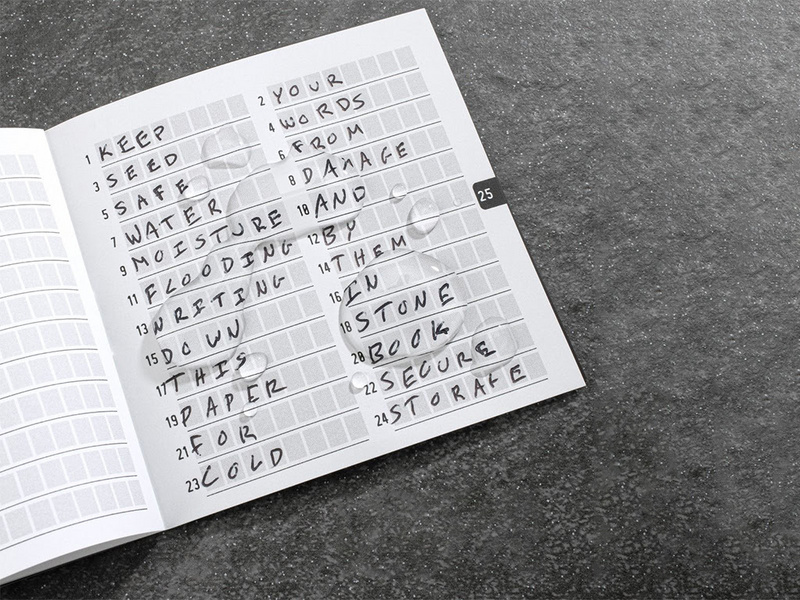 1 KEEP 2 YOUR
3 SEED 4 WORDS
5 SAFE 6 FROM
7 WATER 8 DAMAGE
9 MOISTURE 10 AND
11 FLOODING 12 BY
13 WRITING 14 THEM
15 DOWN 16 IN
17 THIS 18 STONE
19 PAPER 20 BOOK
21 FOR 22 SECURE
23 COLD 24 STORAGE
25